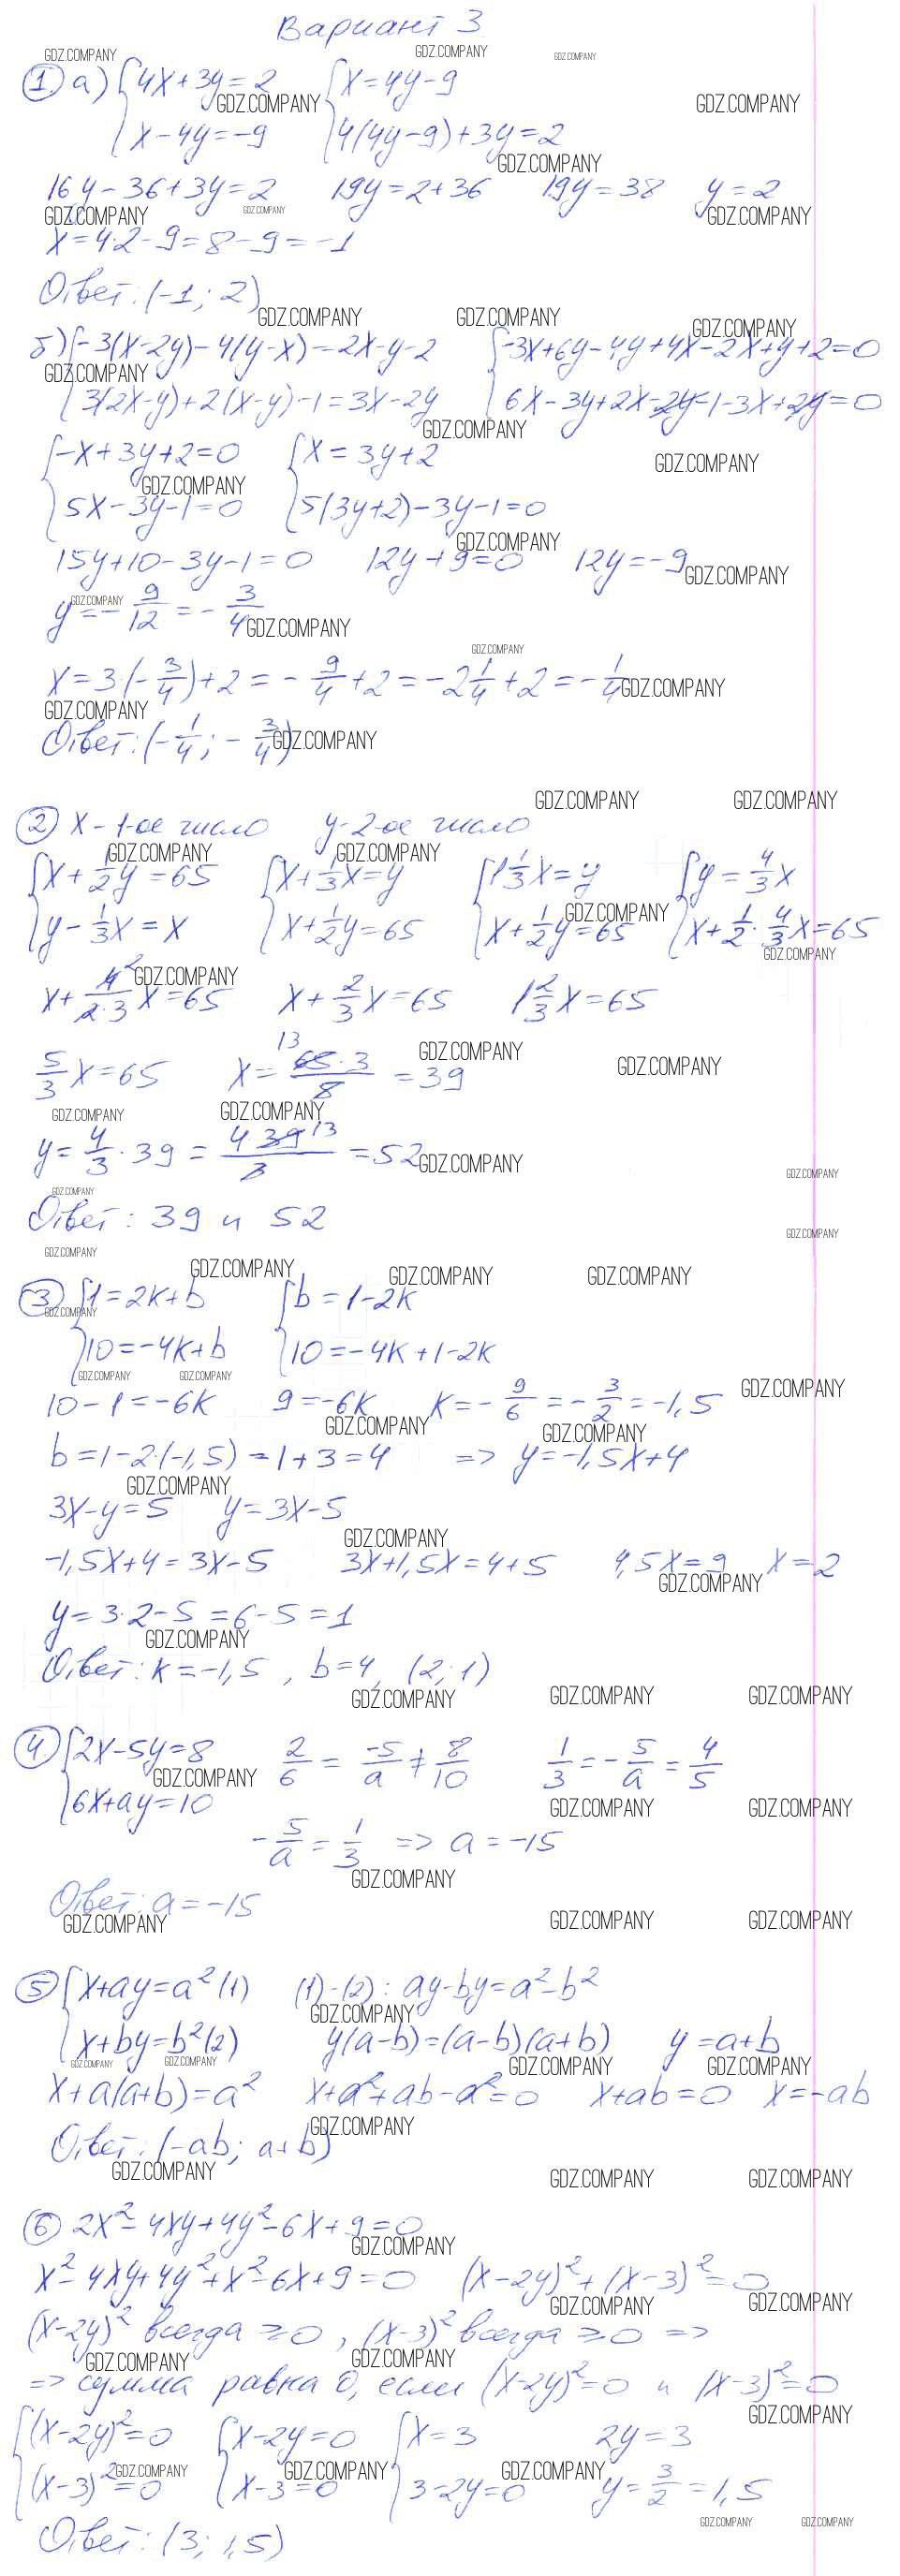 Вариант 3
① а) {4x+3y=2 {x=4y-9
{x-4y=-9 {4(4y-9)+3y=2
16y-36+3y=2 19y=2+36 19y=38 y=2
x=4·2-9=8-9=-1
Ответ: (-1; 2)
б) {-3(x-2y)-4(y-x)=2x-y-2 {-3x+6y-4y+4x-2x+y+2=0
{3(2x-y)+2(x-y)-1=3x-2y {6x-3y+2x-2y-1-3x+2y=0
{-x+3y+2=0 {x=3y+2
{5x-3y-1=0 {5(3y+2)-3y-1=0
15y+10-3y-1=0 12y+9=0 12y=-9
y=-9/12=-3/4
x=3·(-3/4)+2=-9/4+2=-2 1/4+2=-1/4
Ответ: (-1/4; -3/4)
② x-1-ое число y-2-ое число
{x+1/2y=65 {x+1/3x=y {1 1/3x=y {y=4/3x
{y-1/3x=x {x+1/2y=65 {x+1/2y=65 {x+1/2·4/3x=65
x+4²/2·3x=65 x+2/3x=65 1 2/3x=65
5/3x=65 x=13 65·3/8=39
y=4/3·39=4·39 13/3=52
Ответ: 39 и 52
③ {1=2k+b {b=1-2k
{10=-4k+b {10=-4k+1-2k
10-1=-6k 9=-6k k=-9/6=-3/2=-1,5
b=1-2·(-1,5)=1+3=4 => y=-1,5x+4
3x-y=5 y=3x-5
-1,5x+4=3x-5 3x+1,5x=4+5 4,5x=9 x=2
y=3·2-5=6-5=1
Ответ: k=-1,5, b=4, (2; 1)
④ {2x-5y=8 2/6=-5/a≠8/10 1/3=-5/a=4/5
{6x+ay=10
-5/a=1/3 => a=-15
Ответ: a=-15
⑤ {x+ay=a²(1) (1)-(2): ay-by=a²-b²
{x+by=b²(2) y(a-b)=(a-b)(a+b) y=a+b
x+a(a+b)=a² x+a²+ab-a²=0 x+ab=0 x=-ab
Ответ: (-ab; a+b)
⑥ 2x²-4xy+4y²-6x+9=0
x²-4xy+4y²+x²-6x+9=0 (x-2y)²+(x-3)²=0
(x-2y)² всегда ≥0, (x-3)² всегда ≥0 =>
=> сумма равна 0, если (x-2y)²=0 и (x-3)²=0
{(x-2y)²=0 {x-2y=0 {x=3 2y=3
{(x-3)²=0 {x-3=0 {3-2y=0 y=3/2=1,5
Ответ: (3; 1,5)
GDZ.COMPANY